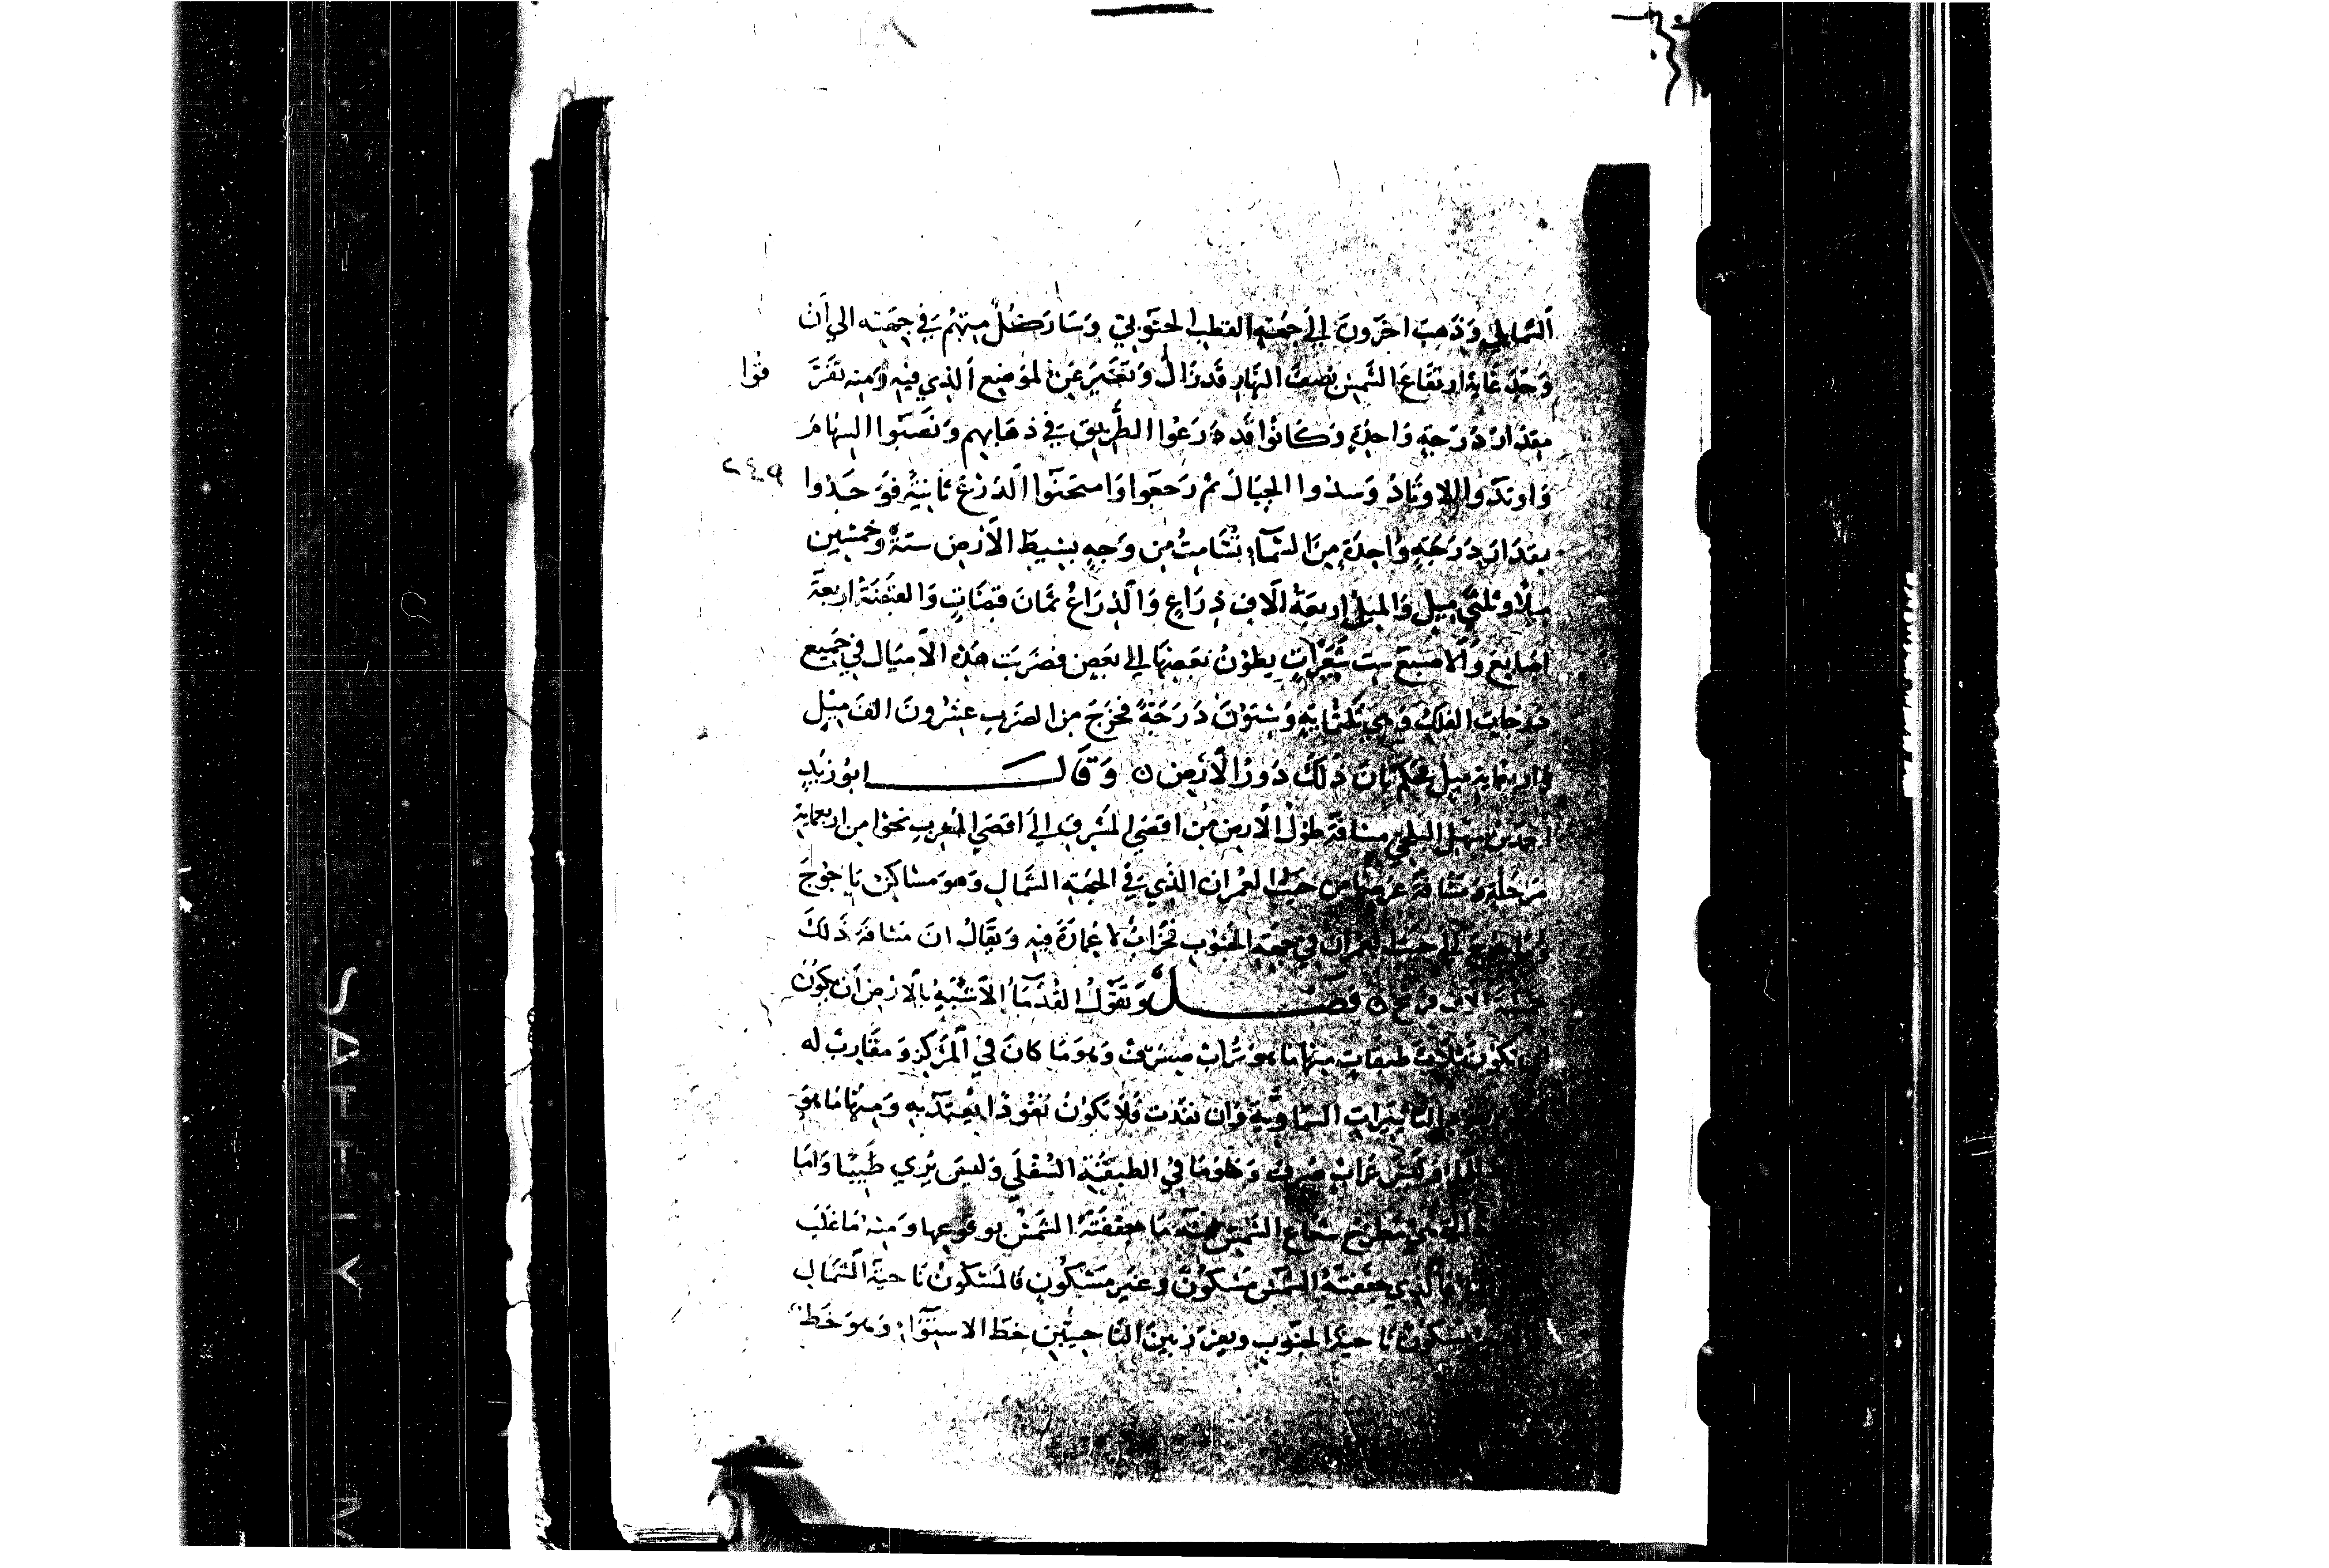 الشمالي وَذهبَ اخرَونَ الي جهَةِ القطب الجنَوبيّ وَسَارَ كلُّ مِنهُم في جهَتِه الي اَن
وَجَدَ غاية ارتفَاعَ الشَمسِ نصفُ النهارِ قَد زَالَ وَتغَيّرَ عَن الموَضِع الذِي فيهِ وَمنه تفَرَّ قوُا
مِقدَارَ دَرَجَةٍ وَاحِدَةٍ وَكَانوُا قَد ذرَعُوا الطَّرِيقَ في ذهَابِهِم وَنَصَبَوا السِهَامَ
وَاوتدَوا الاوتَادَ وَسدوا الحبَالَ ثم رَجعَوا وَامتحَنَوا الذرْعَ ثانيَةً فوَجَدُوا
مقدَارَ دَرَجَةٍ وَاحِدَةٍ مِنَ السَّمَآءِ تُسَامِتُ مِن وَجهِ بَسِيطِ الاَرْضِ ستةً وَخمسِين
مِيلًا وثلثَي مِيلٍ وَالمِيلُ اربعَةُ الاَفِ ذِرَاعٍ وَالذِرَاعُ ثمَانَ قبضَاتٍ وَالقبضَةُ اربعَةُ
اصَابعَ وَالاصبَع ست شَعِيرَاتٍ بطوُنُ بَعضِهَا الي بَعضٍ فضرَبَت هَذِهِ الاَميَال في جَمِيع
دَرَجَاتِ الفلكِ وَهي ثلثمائةٍ وَسِتوُنَ دَرَجَةً فخرَجَ مِن الضَربِ عِشرُونَ الفَ مِيلٍ
وَاربعمايةِ مِيلٍ فحكم بانَ ذلكَ دَورُ الاَرَضِ ٥ وَقَال ابوُ زَيدٍ
احمَد بن سَهلٍ البلخي مسَافَة طوُل الاَرضِ مِن اقصَي المَشرِق الي اَقصَي المغربِ نحوًا من اربعماية
مَرحَلةٍ وَمسَافَة عَرضهَا مِن حيثُ العُمران الذِي في الجهَةِ الشمَالِ وَهوَ مسَاكنُ يَاجوُجَ
وَمَاجوُجَ الي حيثُ العُمرَانُ في جهَةِ الجنوُبِ فخَرَابٌ لا عُمارَةَ فيهِ وَيقَالُ انَ مسَافةَ ذَلكَ
خمسَة الاف فرسَخ ٥ فصَــلٌ وَتقَولُ القُدَمَآءُ الاَشبَهُ بالاَرْضِ اَن يكوُن
تكوُنَ ثلاَثَ طبَقَاتٍ مِنهَا مَا هوَ تُرَابٌ صِرفٌ وَهوَ مَا كانَ في المَرَكزِ وَمقَاربٌ له
التَاثيَرَاتِ السمَاوِيةَ وَان نفذَت فلاَ تكوُنُ نفوُذًا يُعتدَّ بهِ وَمنهَا مَا هوَ
تُرَابٍ صِرفٍ وَهوَ مَا في الطبقَةِ السُفلَي وَليسَ بذِي طبيبًا وَامَا
مَطرَح شعَاع الشمسِ فمنهُ مَا جفَفتهُ الشمسُ بوقوُعِهَا وَمنهُ مَا غلَبَ
فالذِي جفَفتهُ الشمسُ مَسْكوُنٌ وَغَير مَسْكوُنٍ فالمَسْكوُنُ نَاحيَة الشمَالِ
مسكوُن نَاحيَة الجنَوبِ ويفرَزُ بينَ النَاحيتَين خَط الاستوَآءِ وَهوَ خَط
٢٤٩